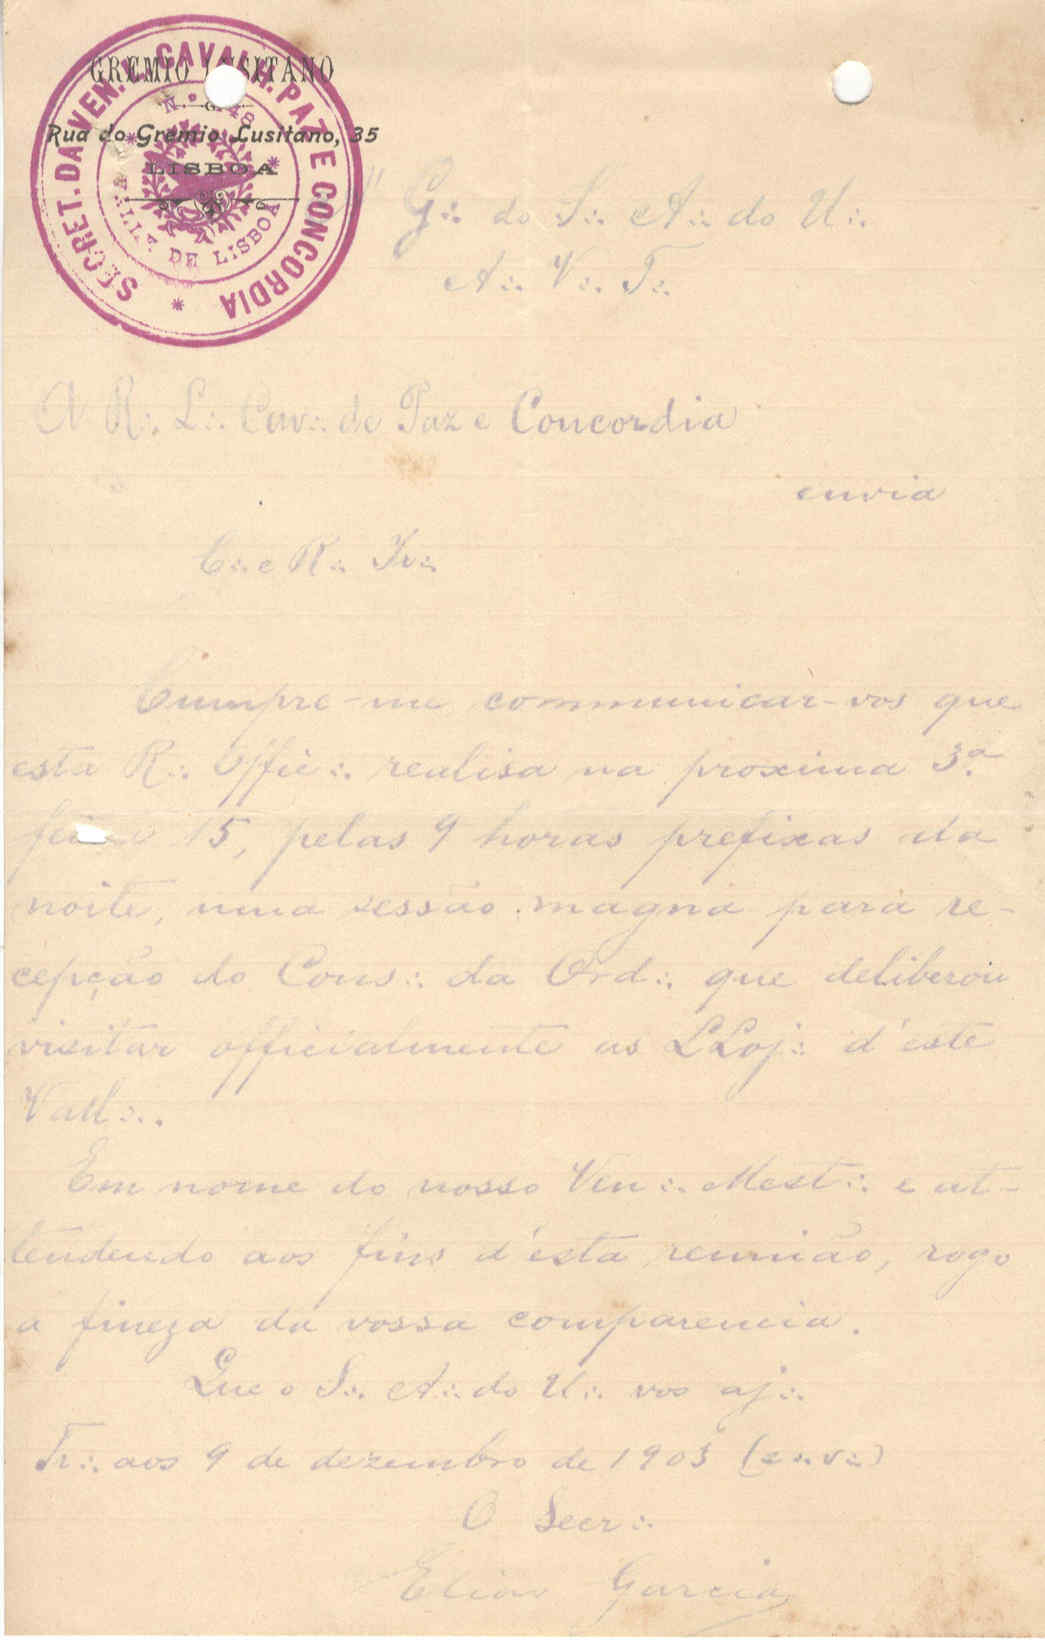 GREMIO LUSITANO
Rua do Gremio Lusitano, 35
LISBOA
SECRET. DA VEN. CAVALH. PAZ E CONCORDIA
VALLE DE LISBOA
G∴ do S∴ A∴ do U∴
A∴ V∴ T∴
A R∴ L∴ Cav∴ de Paz e Concordia
envia
C∴ e R∴ Ir∴
Cumpre-me communicar-vos que
esta R∴ Offic∴ realisa na proxima 3.ª
feira 15, pelas 9 horas prefixas da
noite, uma sessão magna para re-
cepção do Cons∴ da Ord∴ que deliberou
visitar officialmente as LLoj∴ d'este
Vall∴.
Em nome do nosso Ven∴ Mest∴ e at-
tendendo aos fins d'esta reunião, rogo
a fineza da vossa comparencia.
Que o S∴ A∴ do U∴ vos aj∴
Tr∴ aos 9 de dezembro de 1903 (e∴ v∴)
O Secr∴
Elias Garcia